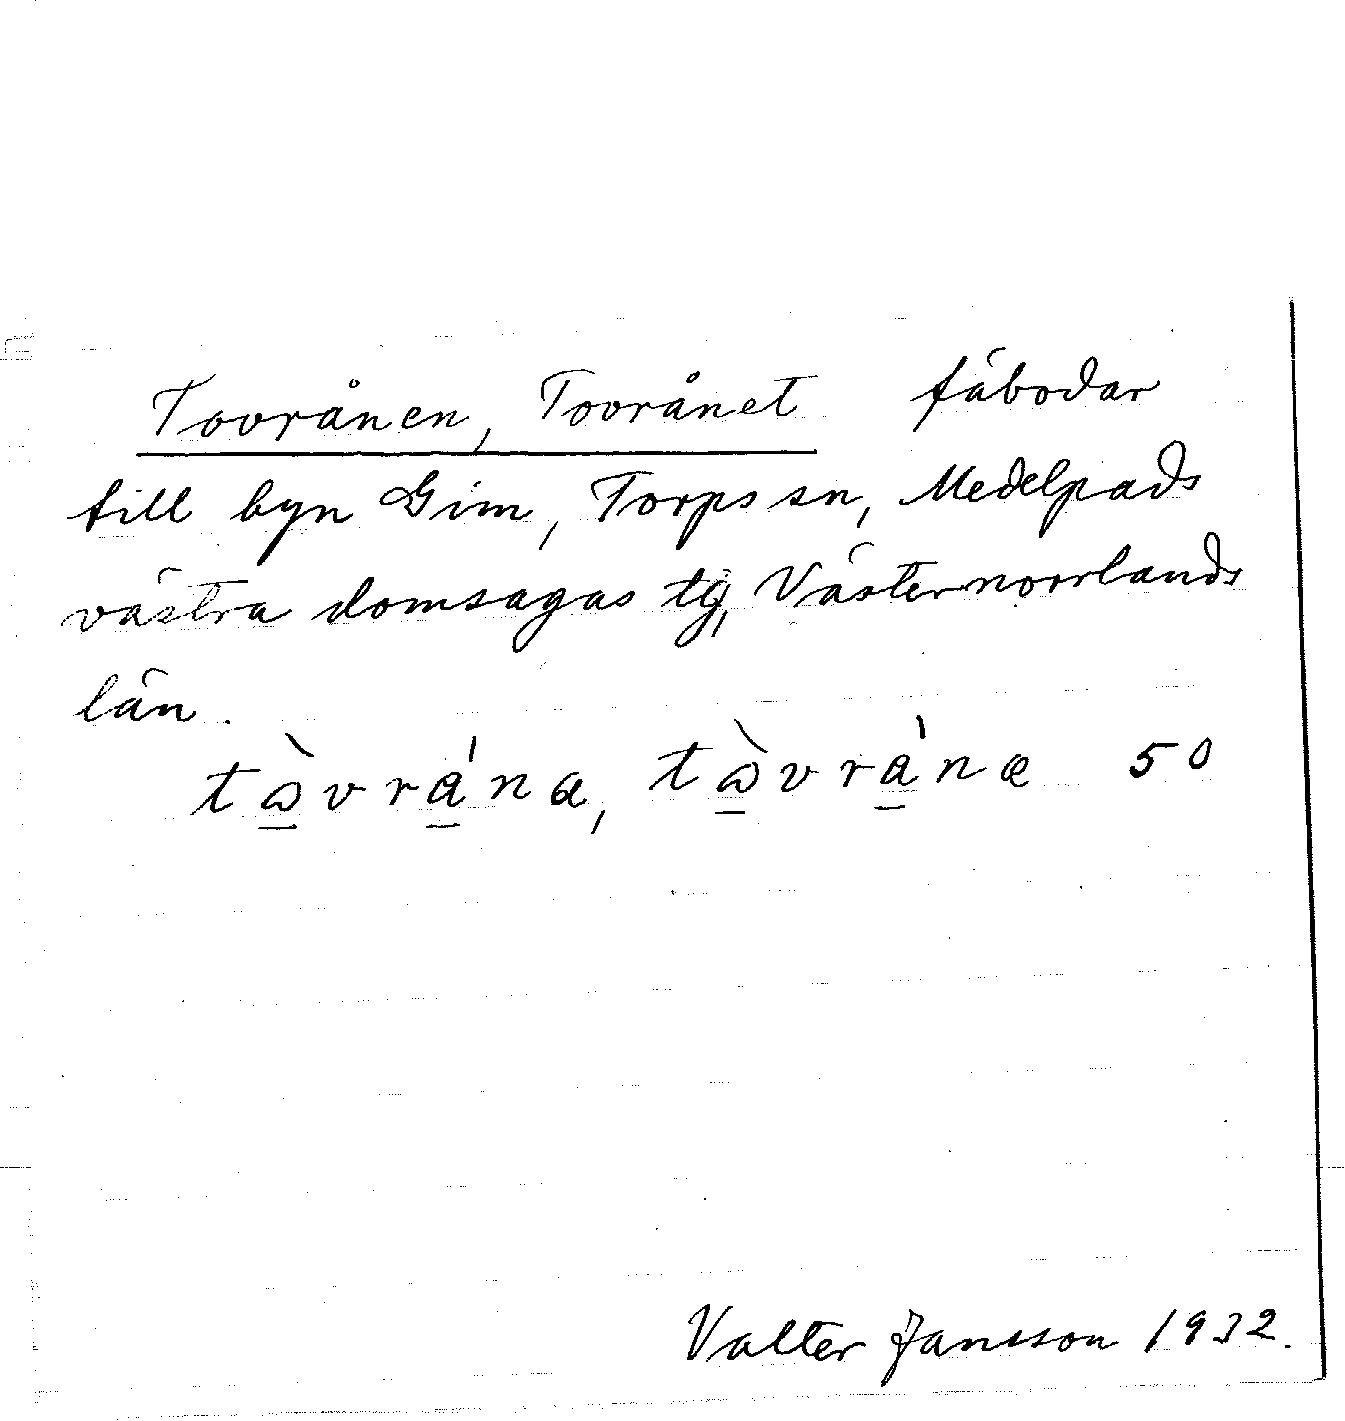 Tovrånen, Tovrånet fäbodar
till byn Gim, Torps sn, Medelpads
västra domsagas tg, Västernorrlands
län.
tɷ̱̀vrá̱na, tɷ̱̀vrá̱næ 50
Valter Jansson 1932.